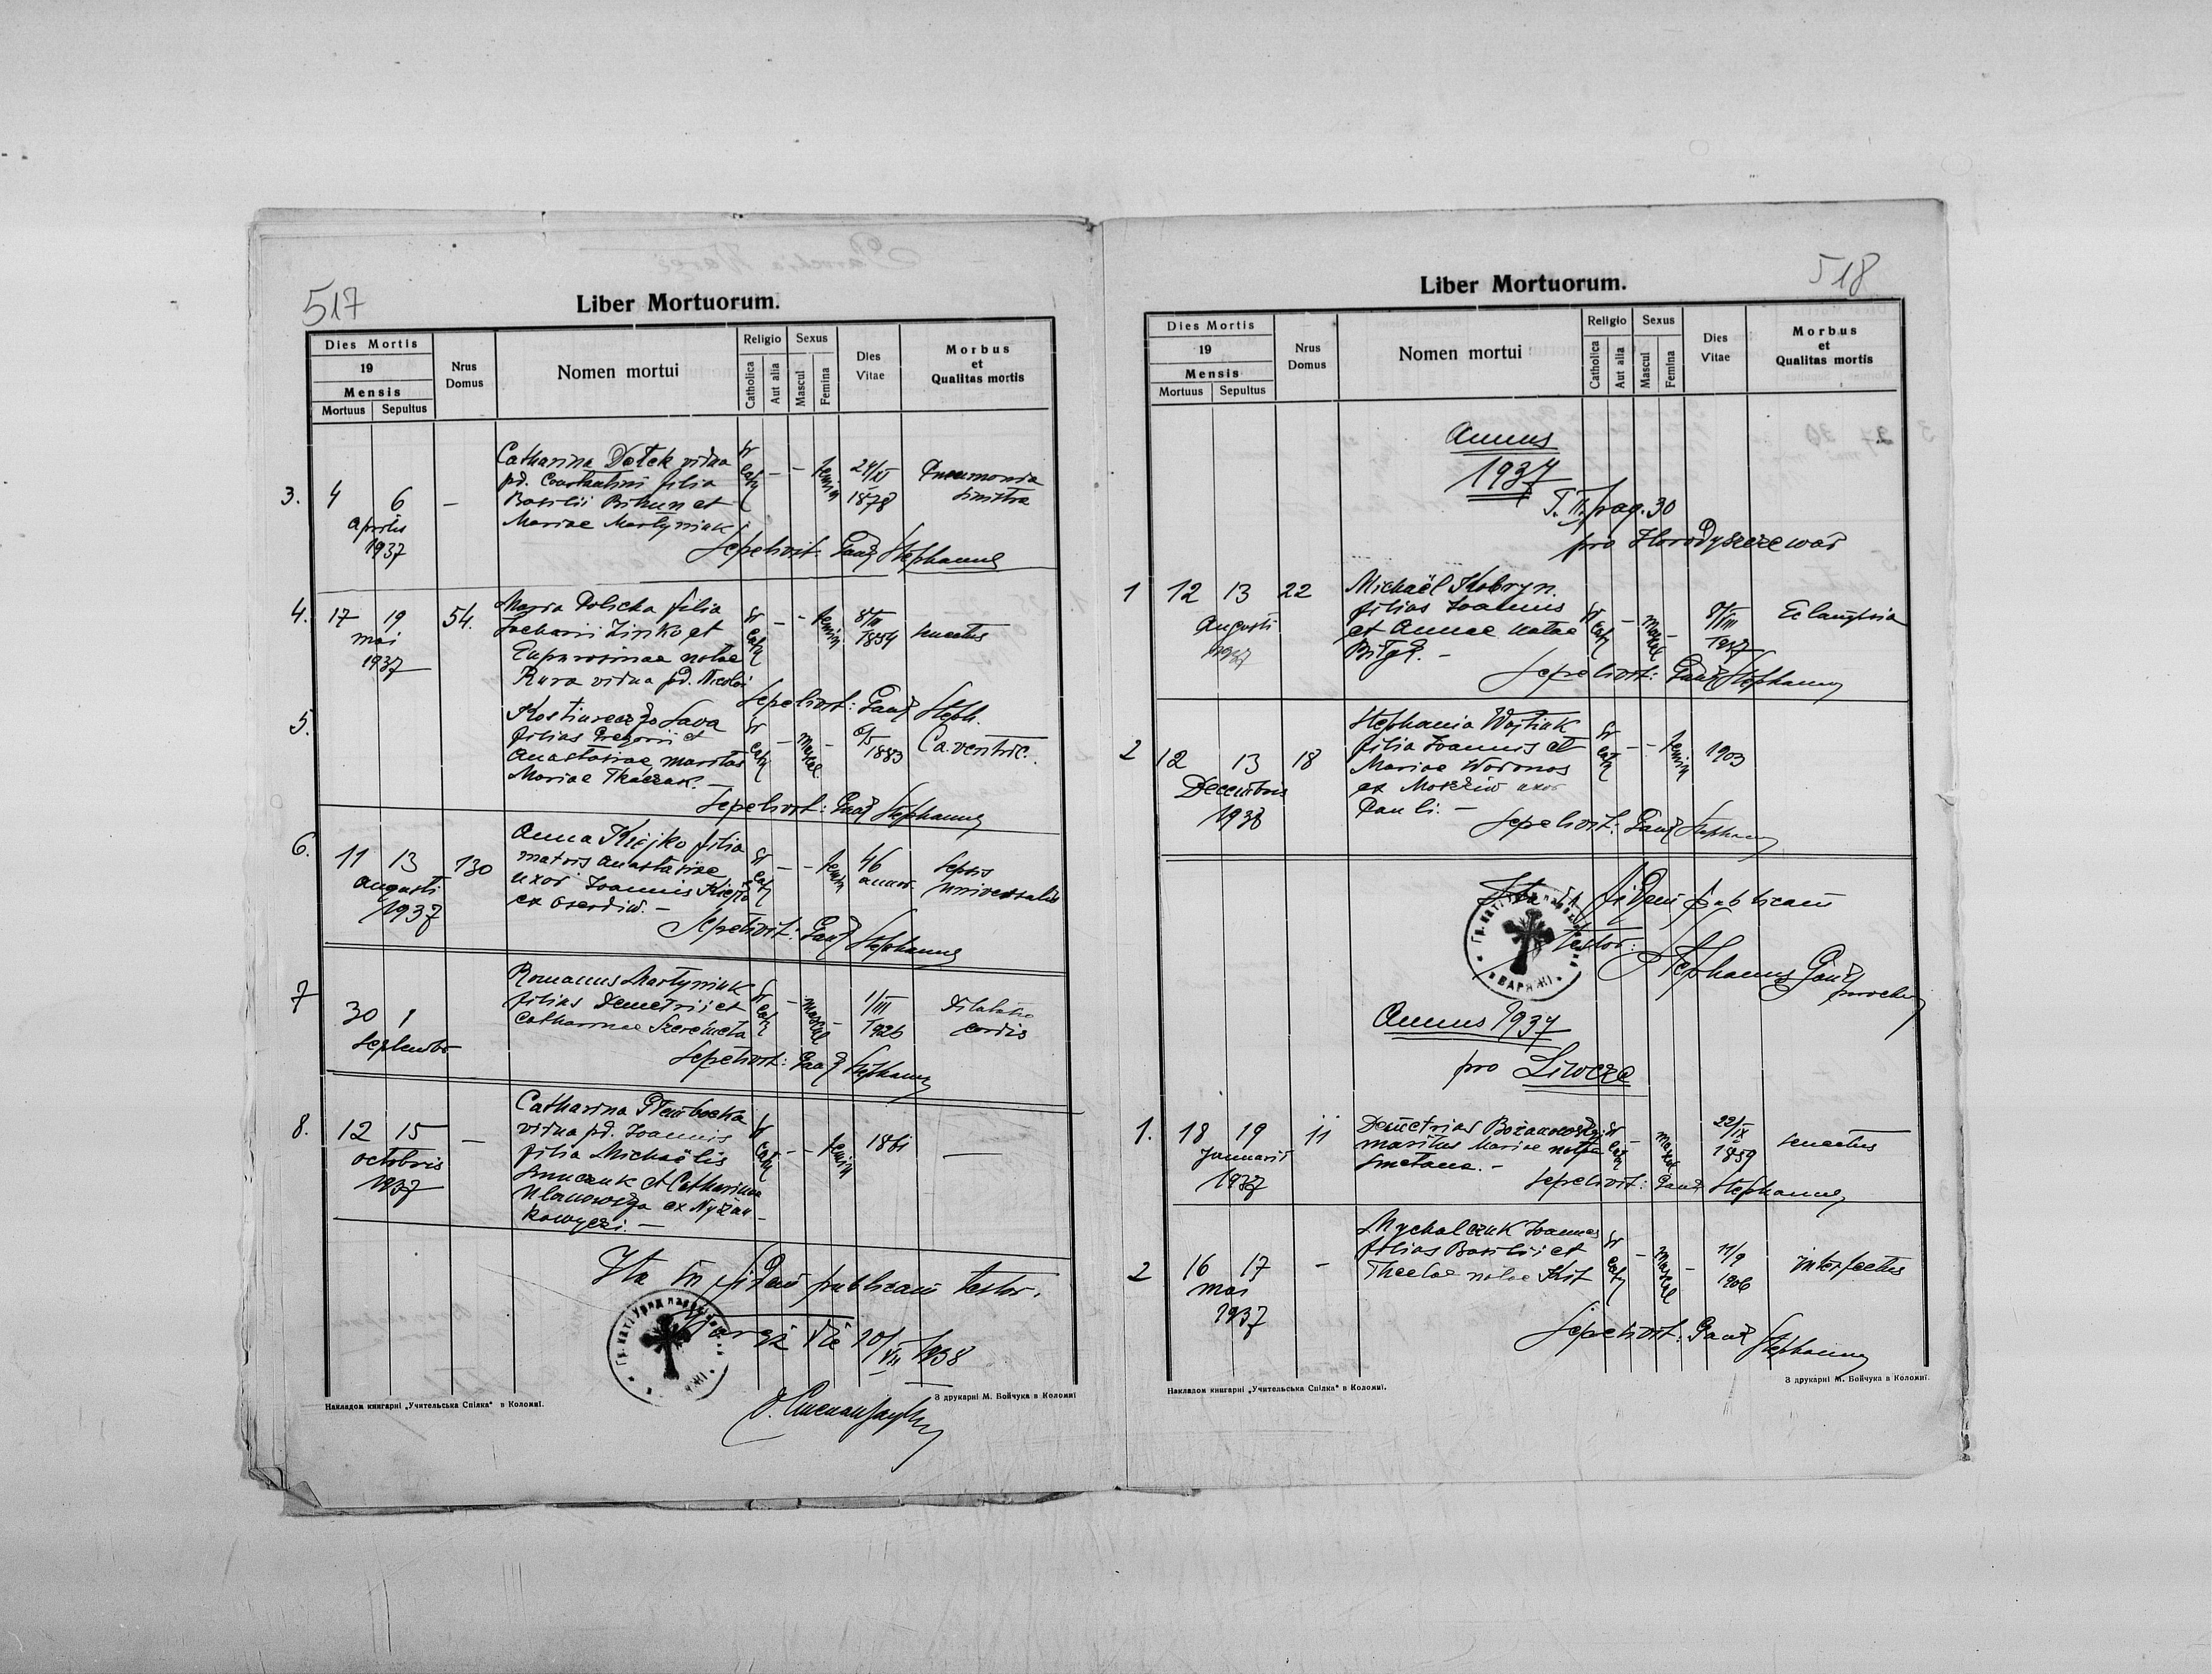 517
Liber Mortuorum.
Dies Mortis
19
Mensis
Mortuus Sepultus
Nrus Domus
Nomen mortui
Religio
Catholica
Aut alia
Sexus
Mascul
Femina
Dies Vitae
Morbus et Qualitas mortis
3. 4 6 —
Aprilis
1937
Catharina Dołek vidua
pd. Constantini filia
Basilii Bihun et
Mariae Martyniuk
gr cath — — femin
24/XI
1878
Pneumonia
sinistra
Sepelivit: Gauż Stephanus
4. 17 19 54.
mai
1937
Maria Dolicka filia
Zacharii Zinko et
Euphrosinae natae
Kura vidua pd. Nicolai
gr cath — — femin
8/III
1854
senectus
Sepelivit: Gauż Steph.
5.
Kostiureczko Sava
filius Gregorii et
Anastasiae maritus
Mariae Tkaczuk. —
gr cath — mascul —
6/5
1883
Ca. ventric.
Sepelivit: Gauż Stephanus
6. 11 13 130
augusti
1937
Anna Kiejko filia
matris Anastasiae
uxor Joannis Kiejko
ex Oserdiw. —
gr cath — — femin
46
annor.
Sepsis
universalis
Sepelivit: Gauż Stephanus
7 30 1
Septembr
Romanus Martyniuk
filius Demetrii et
Catharinae Szeremeta
gr cath — mascul —
1/III
1926
Dilatatio
cordis
Sepelivit: Gauż Stephanus
8. 12 15 —
octobris
1937
Catharina
vidua pd. Joannis
filia Michaëlis
et Catharinae
ex Nyżan-
kowyczi. —
gr cath — — femin
1861
—
Ita in fidem publicam testor.
Waręż die 20/VII 1938
Гр. кат. Уряд парохіяльний
Накладом книгарні „Учительська Спілка“ в Коломиї.
З друкарні М. Бойчука в Коломиї
518
Liber Mortuorum.
Dies Mortis
19
Mensis
Mortuus Sepultus
Nrus Domus
Nomen mortui
Religio
Catholica
Aut alia
Sexus
Mascul
Femina
Dies Vitae
Morbus et Qualitas mortis
Annus
1937
T. II. pag. 30
pro Horodyszcze war
1 12 13 22
Augusti
1937
Michaël Kobryn.
filius Joannis
et Annae natae
gr cath — mascul —
8/VIII
1937
Eclampsia
Sepelivit: Gauż Stephanus
2 12 13 18
Decembris
1937
Stephania Wojtiuk
filia Joannis et
Mariae Woronos
ex uxor
Pauli. —
gr cath — — femin
1903
Sepelivit: Gauż Stephanus
Ita in fidem publicam
testor:
Stephanus Gauż
parochus
Гр. кат. ВАРЯЖІ
Annus 1937
pro Liwcze
1. 18 19 11
Januarii
1937
Demetrius Bożanowskyj
maritus Mariae natae
Smetana. —
gr cath — mascul
22/IX
1859
senectus
Sepelivit: Gauż Stephanus
2 16 17 —
mai
1937
Mychalczuk Joannes
filius Basilii et
Theclae natae Kit
gr cath — mascul —
11/9
1906
interfectus
Sepelivit: Gauż Stephanus
Накладом книгарні „Учительська Спілка“ в Коломиї.
З друкарні М. Бойчука в Коломиї.